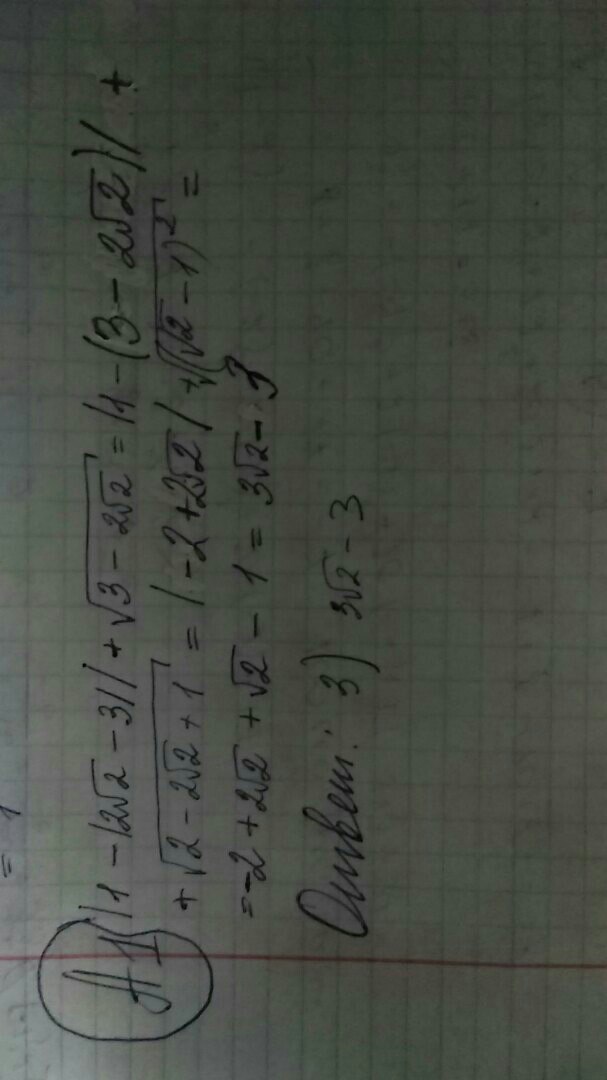 = 1
A1 |1-|2√2-3|| + √3-2√2 = |1-(3-2√2)| +
+ √2-2√2+1 = |-2+2√2| + √(√2-1)² =
= -2+2√2+√2-1 = 3√2-3
Ответ: 3) 3√2-3